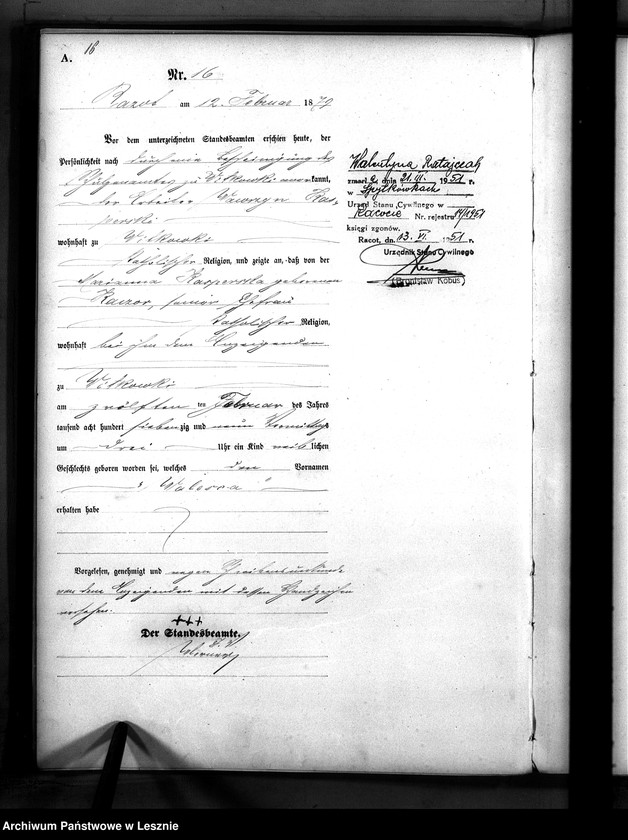 A. 16
Nr. 16
Racot am 12. Februar 1879
Vor dem unterzeichneten Standesbeamten erschien heute, der
Persönlichkeit nach durch eine Bescheinigung des
zu Witkowki anerkannt,
der Arbeiter Kas-
perski
wohnhaft zu Witkowki
katholischer Religion, und zeigte an, daß von der
Marianna Kasperska geborenen
Kaczor, seiner Ehefrau
katholischer Religion,
wohnhaft bei ihm dem Anzeigenden
zu Witkowki
am zwölften ten Februar des Jahres
tausend acht hundert siebenzig und neun Vormittags
um drei Uhr ein Kind weiblichen
Geschlechts geboren worden sei, welches den Vornamen
"Walerya"
erhalten habe
Vorgelesen, genehmigt und wegen Schreibensunkunde
von dem Anzeigenden mit dessen Handzeichen
versehen.
+++
Der Standesbeamte.
I. V.
Walentyna Ratajczak
zmarł a dnia 21. III. 1951 r.
w Spytkówkach
Urząd Stanu Cywilnego w
Racocie Nr. rejestru 14/1951
księgi zgonów.
Racot, dn. 13. VI. 1951 r.
Urzędnik Stanu Cywilnego
(Bronisław Kobus)
Archiwum Państwowe w Lesznie